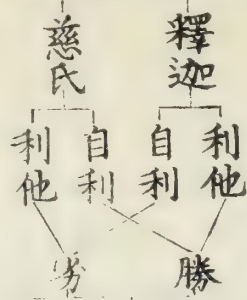 釋迦
慈氏
利他
自利
自利
利他
勝
劣